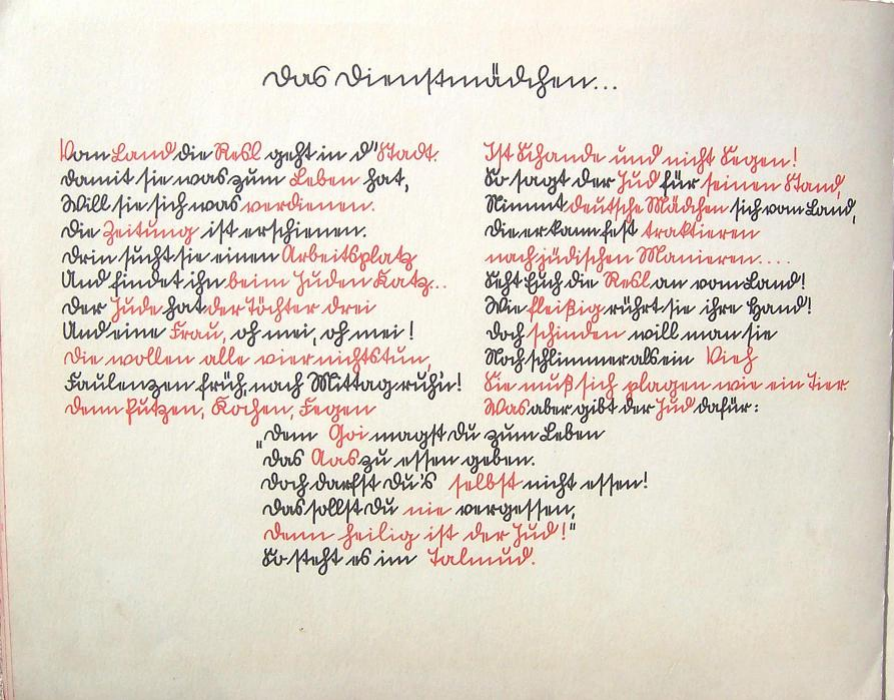 Das Dienstmädchen...
Vom Land die Resl geht in d'Stadt.
Damit sie was zum Leben hat,
Will sie sich was verdienen.
Die Zeitung ist erschienen.
Drin sucht sie einen Arbeitsplatz
Und findet ihn beim Juden Katz...
Der Jude hat der Töchter drei
Und eine Frau, oh mei, oh mei!
Die wollen alle vier nichts tun,
Faulenzen früh, nach Mittag ruh'n!
Denn Putzen, Kochen, Fegen
Ist Schande und nicht Segen!
So sagt der Jud für seinen Stand,
Nimmt deutsche Mädchen sich vom Land,
Die er kann fest traktieren
nach jüdischen Manieren....
Seht Euch die Resl an vom Land!
Wie fleißig rührt sie ihre Hand!
Doch schinden will man sie
Noch schlimmer als ein Vieh
Sie muß sich plagen wie ein Tier.
Was aber gibt der Jud dafür:
„Dem Goi magst Du zum Leben
Das Aas zu essen geben.
Doch darfst Du's selbst nicht essen!
Das sollst Du nie vergessen,
Denn heilig ist der Jud!"
So steht es im Talmud.